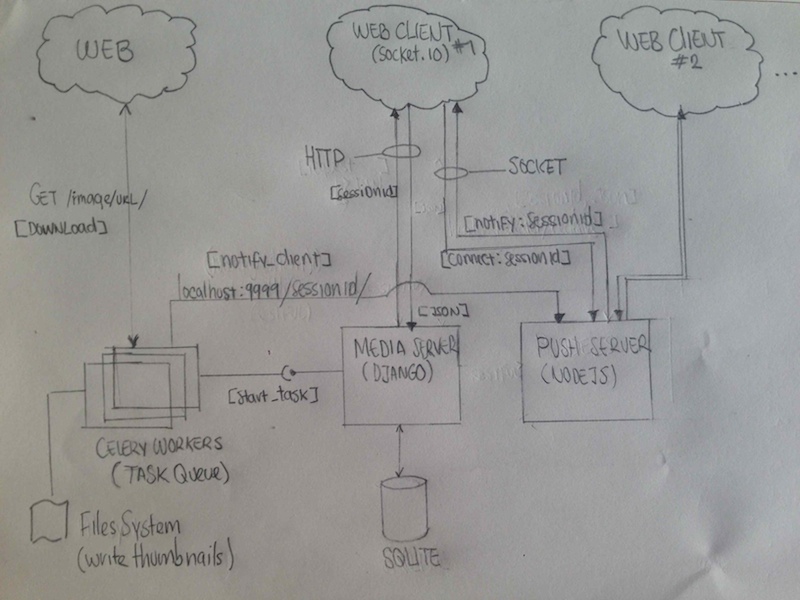 WEB
WEB CLIENT
(Socket.IO) #1
WEB CLIENT
#2
...
HTTP
[sessionid]
SOCKET
GET /image/url/
[DOWNLOAD]
[notify:sessionid]
[connect:sessionid]
[notify_client]
localhost:9999/sessionid/
[JSON]
MEDIA SERVER
(DJANGO)
PUSH SERVER
(NODEJS)
[start_task]
CELERY WORKERS
(TASK Queue)
Files System
(write thumbnails)
SQLITE